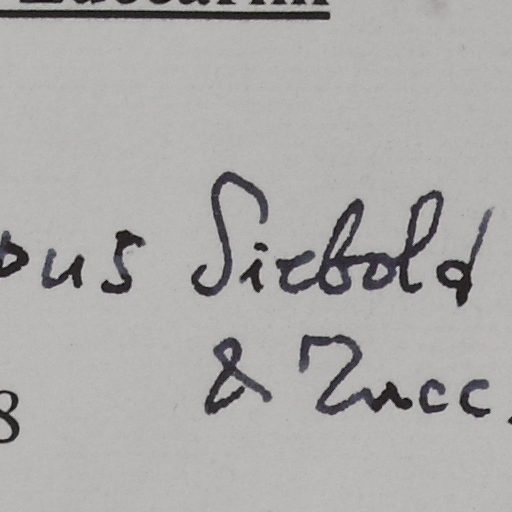 Zuccarini
ous Siebold
& Zucc.
8